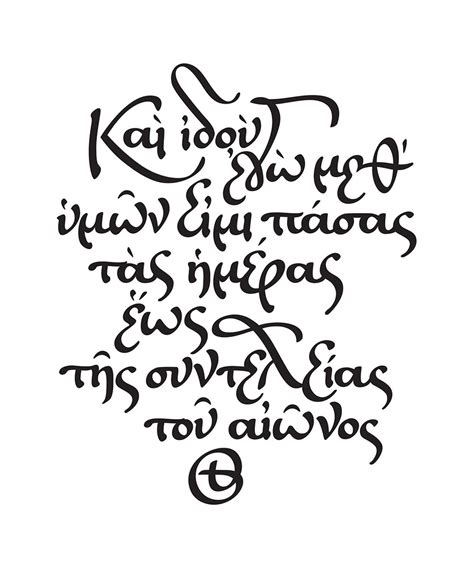 Καὶ ἰδοὺ
ἐγὼ μεθ’
ὑμῶν εἰμι πάσας
τὰς ἡμέρας
ἕως
τῆς συντελείας
τοῦ αἰῶνος